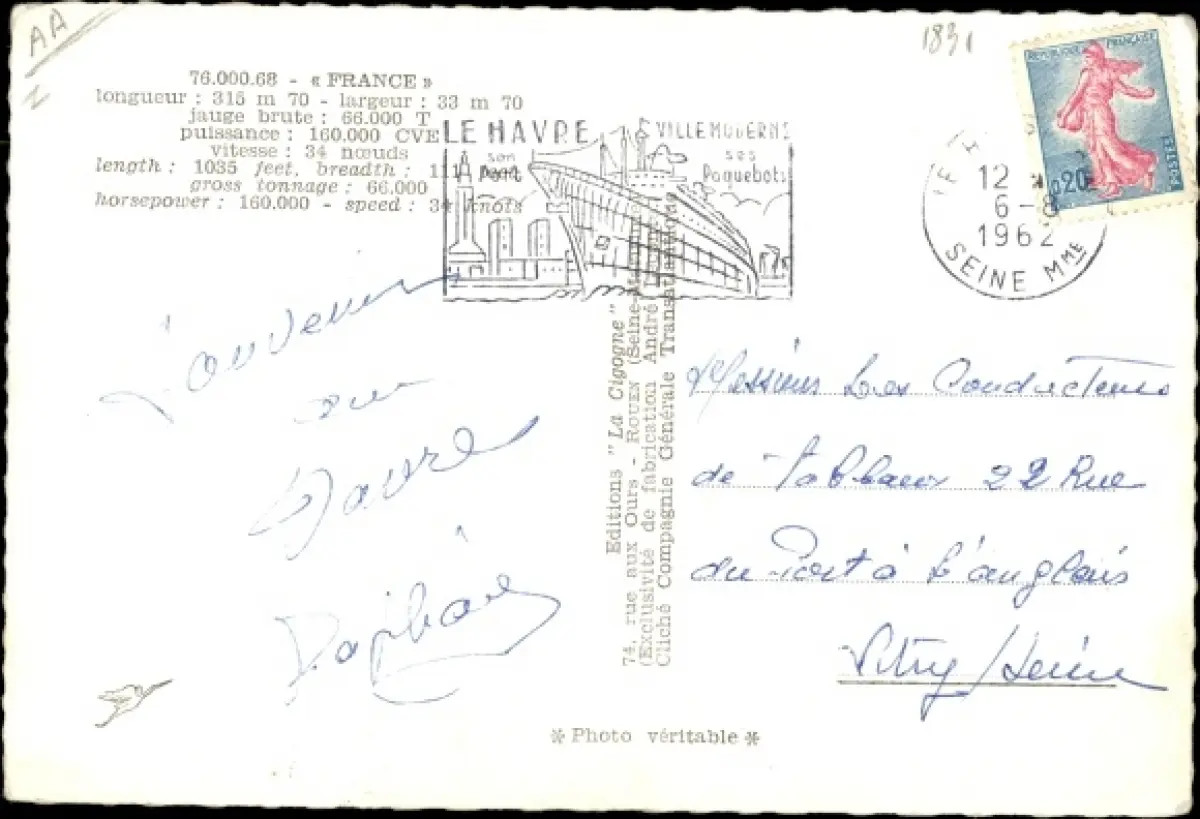 AA
1831
76.000.68 - « FRANCE »
longueur : 315 m 70 - largeur : 33 m 70
jauge brute : 66.000 T
puissance : 160.000 CVE
vitesse : 34 nœuds
length : 1035 feet, breadth : 111 feet
gross tonnage : 66.000
horsepower : 160.000 - speed : 34 knots
LE HAVRE
son
Port
VILLE MODERNE
ses
Paquebots
REPUBLIQUE FRANÇAISE
0,20
POSTES
12
6-8
1962
SEINE MME
Souvenir
du
Havre
Messieurs Les Conducteurs
de Tableaux 22 Rue
du Port à L'anglais
Vitry / Seine
Editions "La Cigogne"
74, rue aux Ours - ROUEN (Seine-
(Exclusivité de fabrication André
Cliché Compagnie Générale Transatlantique
* Photo véritable *